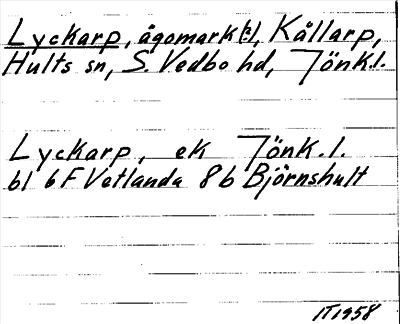 Lyckarp, ägomark(?), Kållarp,
Hults sn, S. Vedbo hd, Jönk.l.
Lyckarp, ek Jönk.l.
bl 6F Vetlanda 8b Björnshult
IT1958